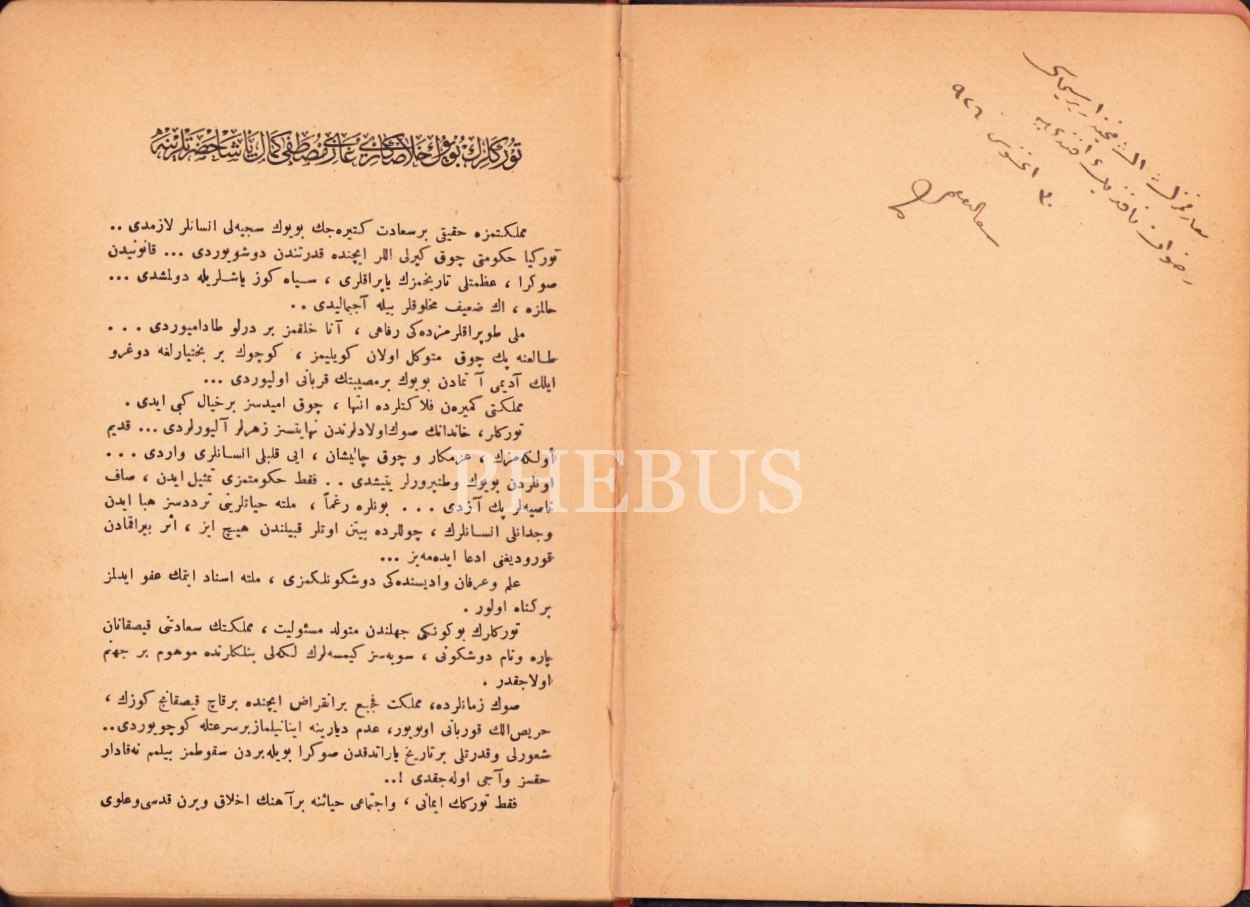 توركلرك بويوك خلاصكارى غازى مصطفى كمال پاشا حضرتلرينه
مملكتمزه حقيقى برسعادت كتيره‌جك بويوك سجيه‌لى انسانلر لازمدى ..
توركيا حكومتى چوق كيرلى اللر ايچنده قدرتندن دوشويوردى ... قانونيدن
صوكرا ، عظمتلى تاريخمزك ياپراقلرى ، سياه كوز ياشلريله دولمشدى ...
حالمزه ، اك ضعيف مخلوقلر بيله آجيماليدى ..
ملى طوپراقلرمزده‌كى رفاهى ، آنا خلقمز بر درلو طاداميوردى ...
طالعنه پك چوق متوكل اولان كويليمز ، كوچوك بر بختيارلغه دوغرو
ايلك آديمى آتمادن بويوك برمصيبتك قربانى اوليوردى ...
مملكتى كميرەن فلاكتلرده انتها ، چوق اميدسز برخيال كبى ايدى .
توركلر، خاندانك صوك اولادلرندن نهايتسز زهرلر آليورلردى ... قديم
أولكه‌مزك ، عزمكار و چوق چاليشان ، ايى قلبلى انسانلرى واردى ...
اونلردن بويوك وطنپرورلر يتيشدى .. فقط حكومتمزى تمثيل ايدن ، صاف
ناصيه‌لر پك آزدى ... بونلره رغماً ، ملته حياتلرينى ترددسز هبا ايدن
وجدانلى انسانلرك ، چوللرده بيتن اوتلر قبيلندن هيچ ايز ، اثر بيراقمادن
قوروديغنى ادعا ايده‌مه‌يز ...
علم وعرفان واديسنده‌كى دوشكونلكمزى ، ملته اسناد ايتمك عفو ايدلمز
بركناه اولور .
توركلرك بوكونكى جهلندن متولد مسئوليت ، مملكتك سعادتنى قيصقانان
پاره ونام دوشكونى ، سويه‌سز كيمسه‌لرك لكه‌لى بنلكلرنده موهوم بر جهنم
اولاجقدر .
صوك زمانلرده، مملكت فجيع برانقراض ايچنده برقاچ قيصقانج كوزك ،
حريص الك قوربانى اويويور، عدم ديارينه اينانيلمازبرسرعتله كوچويوردى..
شعورلى وقدرتلى برتاريخ ياراتدقدن صوكرا بويله‌بردن سقوطمز بيلمم نه‌قادار
حقسز وآجى اوله‌جقدى !..
فقط توركك ايمانى ، واجتماعى حياتنه برآهنك اخلاق ويرن قدسى وعلوى
٣٠ اغستوس ٩٢٦
PHEBUS